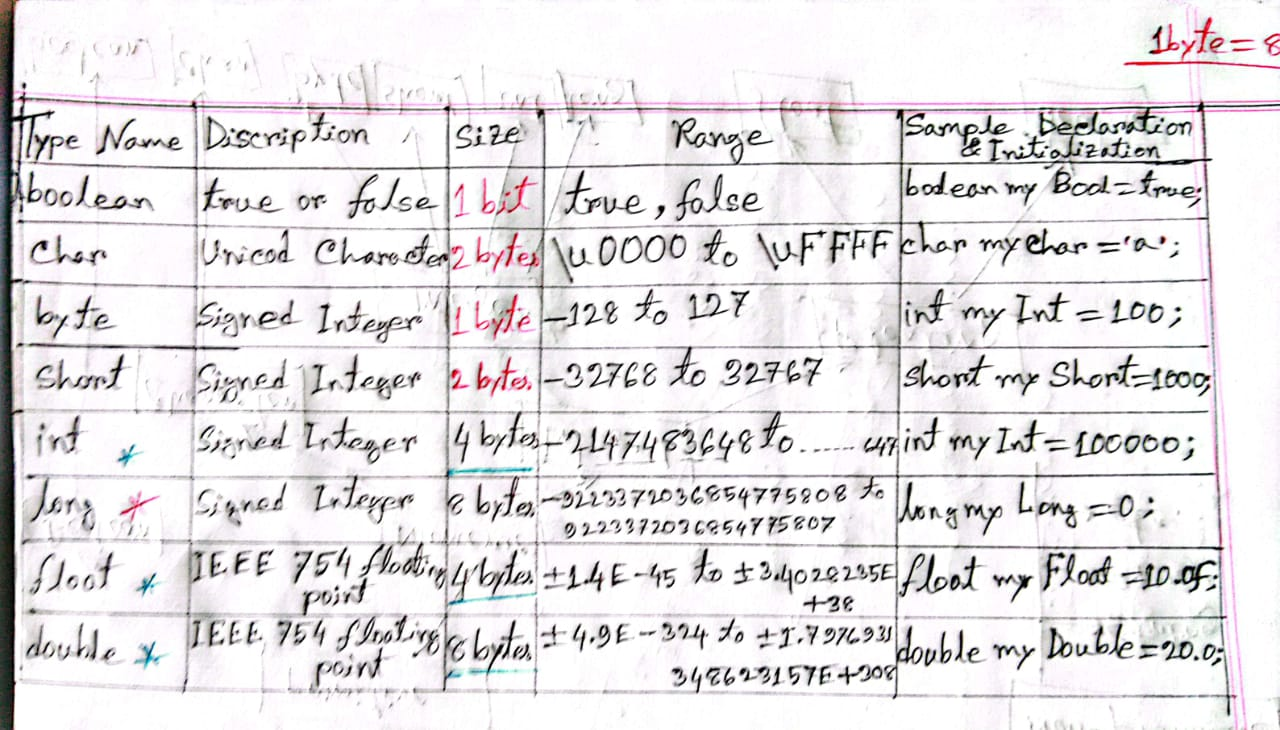 1byte = 8
Type Name Discription Size Range Sample Declaration
& Initialization
boolean true or false 1 bit true, false boolean my Bool = true;
Char Unicod Character 2 bytes \u0000 to \uFFFF char my char = 'a';
byte Signed Integer 1 byte -128 to 127 int my Int = 100;
Short Signed Integer 2 bytes. -32768 to 32767 short my Short=1000;
int * Signed Integer 4 bytes -2147483648 to ...... 647 int my Int = 100000;
long * Signed Integer 8 bytes -9223372036854775808 to
9223372036854775807 long my Long = 0;
float * IEEE 754 floating
point 4 bytes ±1.4E-45 to ±3.4028235E
+38 float my Float = 10.0f;
double * IEEE 754 floating
point 8 bytes ±4.9E-324 to ±1.7976931
348623157E+308 double my Double = 20.0;